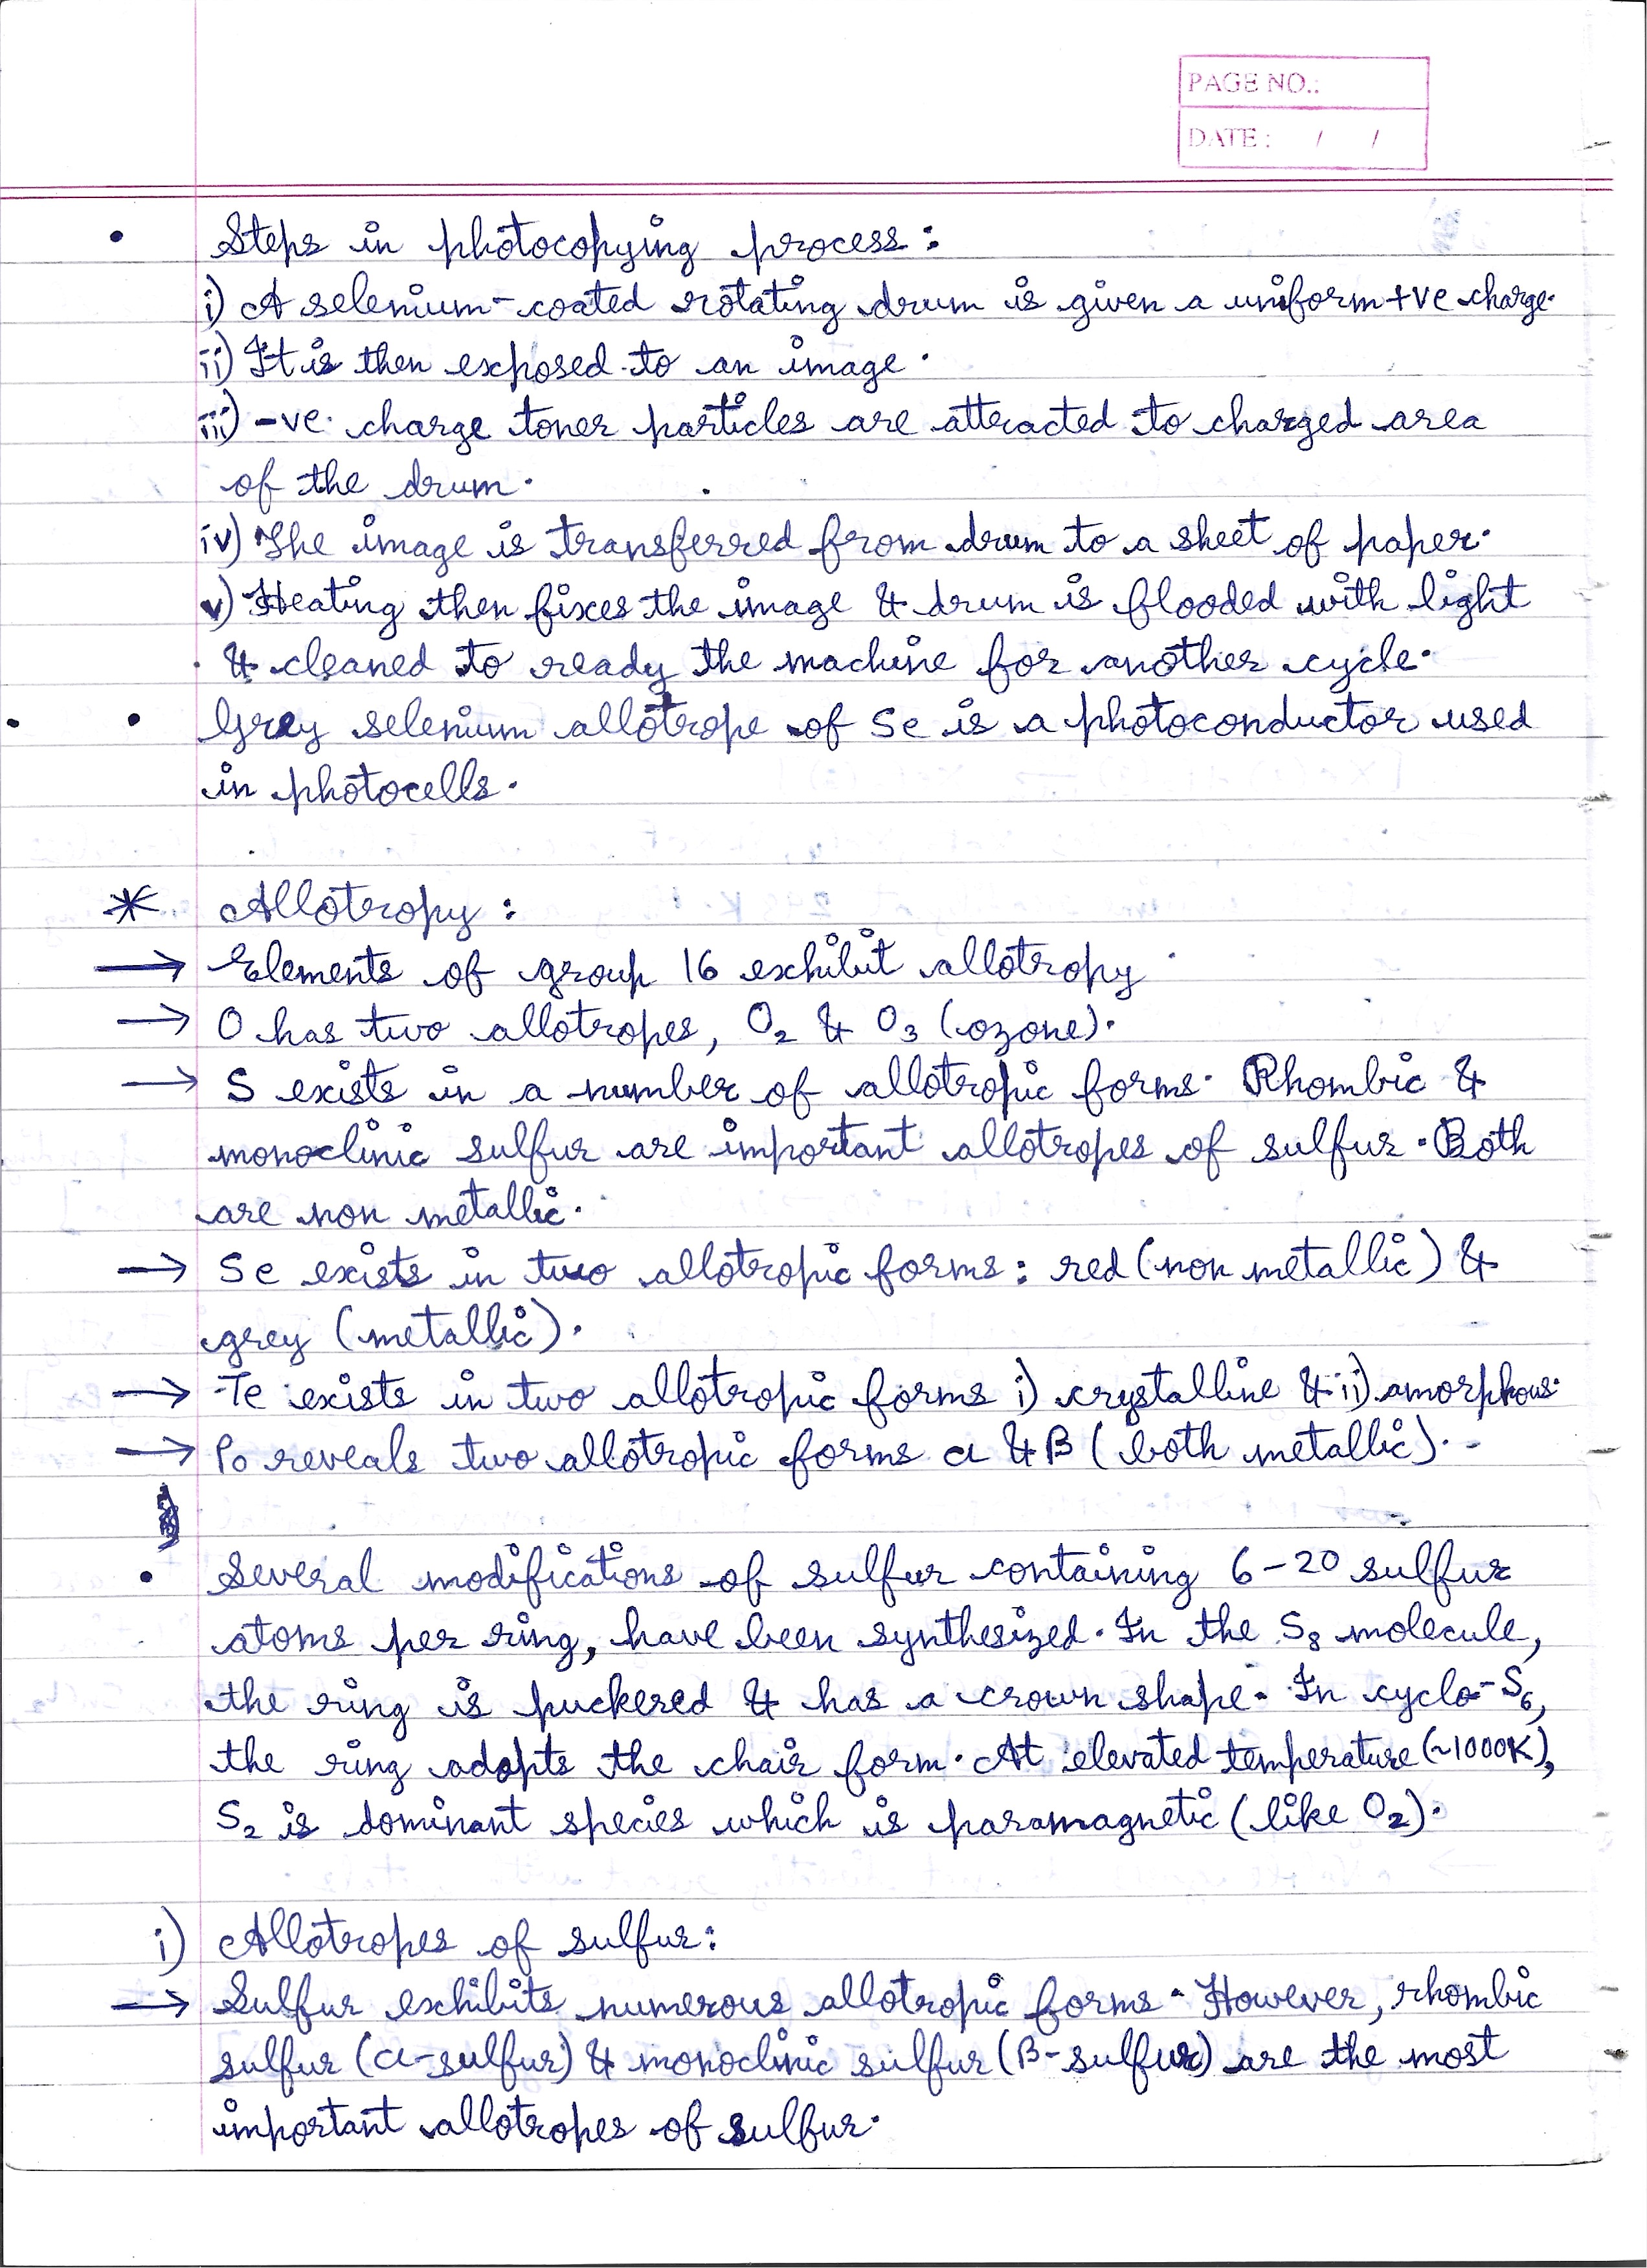 PAGE NO.:
DATE: / /
• Steps in photocopying process:
i) A selenium-coated rotating drum is given a uniform +ve charge.
ii) It is then exposed to an image.
iii) -ve charge toner particles are attracted to charged area
of the drum.
iv) The image is transferred from drum to a sheet of paper.
v) Heating then fixes the image & drum is flooded with light
& cleaned to ready the machine for another cycle.
• Grey selenium allotrope of Se is a photoconductor used
in photocells.
* Allotropy:
→ Elements of group 16 exhibit allotropy.
→ O has two allotropes, O₂ & O₃ (ozone).
→ S exists in a number of allotropic forms. Rhombic &
monoclinic sulfur are important allotropes of sulfur. Both
are non metallic.
→ Se exists in two allotropic forms: red (non metallic) &
grey (metallic).
→ Te exists in two allotropic forms i) crystalline & ii) amorphous.
→ Po reveals two allotropic forms α & β (both metallic).
• Several modifications of sulfur containing 6-20 sulfur
atoms per ring, have been synthesized. In the S₈ molecule,
the ring is puckered & has a crown shape. In cyclo-S₆,
the ring adopts the chair form. At elevated temperature (~1000K),
S₂ is dominant species which is paramagnetic (like O₂).
i) Allotropes of sulfur:
→ Sulfur exhibits numerous allotropic forms. However, rhombic
sulfur (α-sulfur) & monoclinic sulfur (β-sulfur) are the most
important allotropes of sulfur.